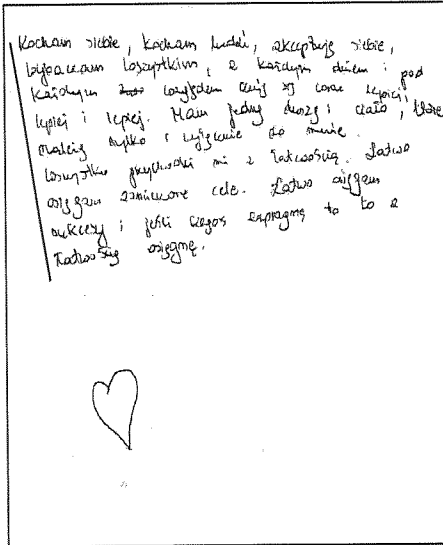 Kocham siebie, kocham ludzi, akceptuję siebie,
wybaczam wszystkim, z każdym dniem i pod
każdym względem czuję się coraz lepiej,
lepiej i lepiej. Mam jedną duszę i ciało, które
należą tylko i wyłącznie do mnie.
Wszystko przychodzi mi z łatwością. Łatwo
osiągam zamierzone cele. Łatwo osiągam
sukcesy i jeśli czegoś zapragnę to to z
łatwością osiągnę.